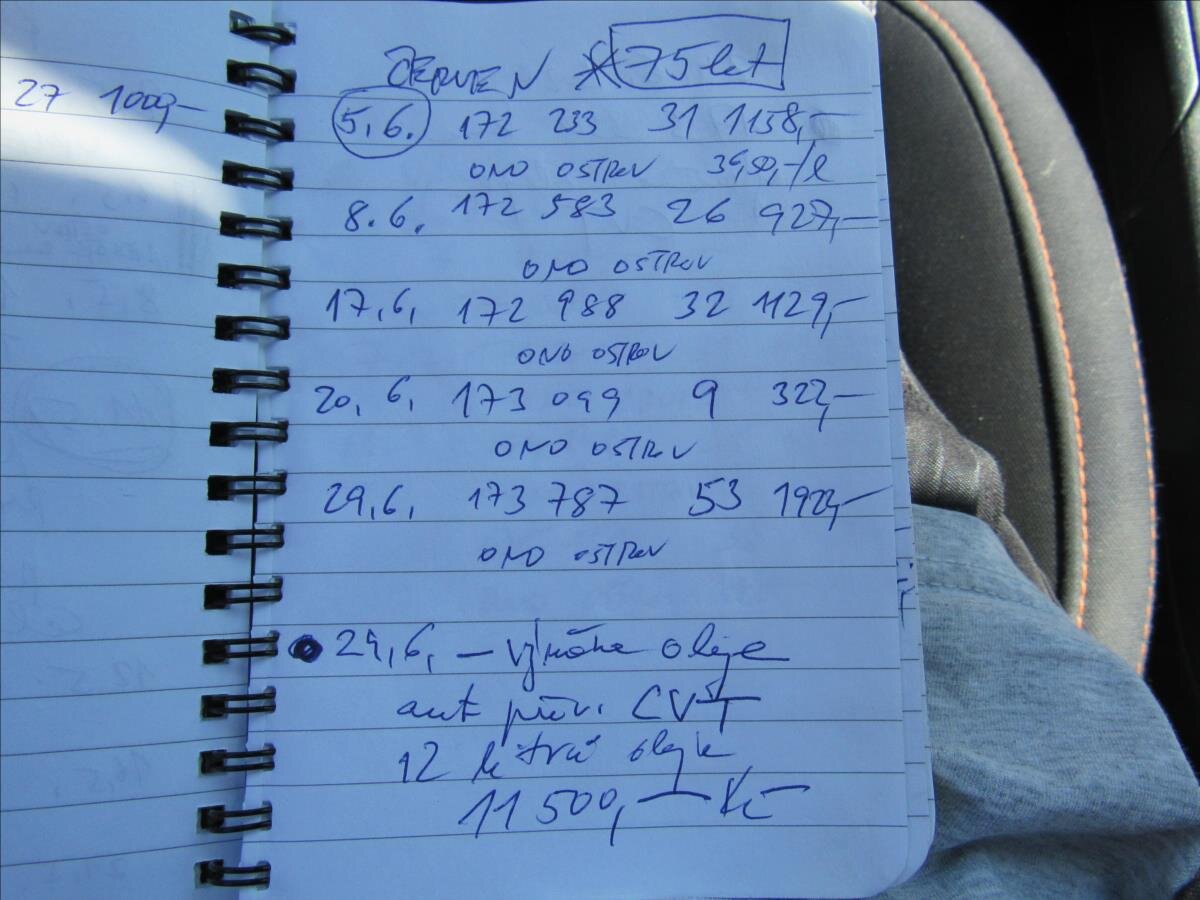 27 1000,-
ČERVEN * 75 let
5.6. 172 233 31 1158,-
ONO OSTROV 39,50,-/l
8.6. 172 583 26 927,-
ONO OSTROV
17.6. 172 988 32 1129,-
ONO OSTROV
20.6. 173 099 9 322,-
ONO OSTROV
29.6. 173 787 53 1922,-
ONO OSTROV
29.6. – výměna oleje
aut. přev. CVT
12 litrů oleje
11 500,- Kč